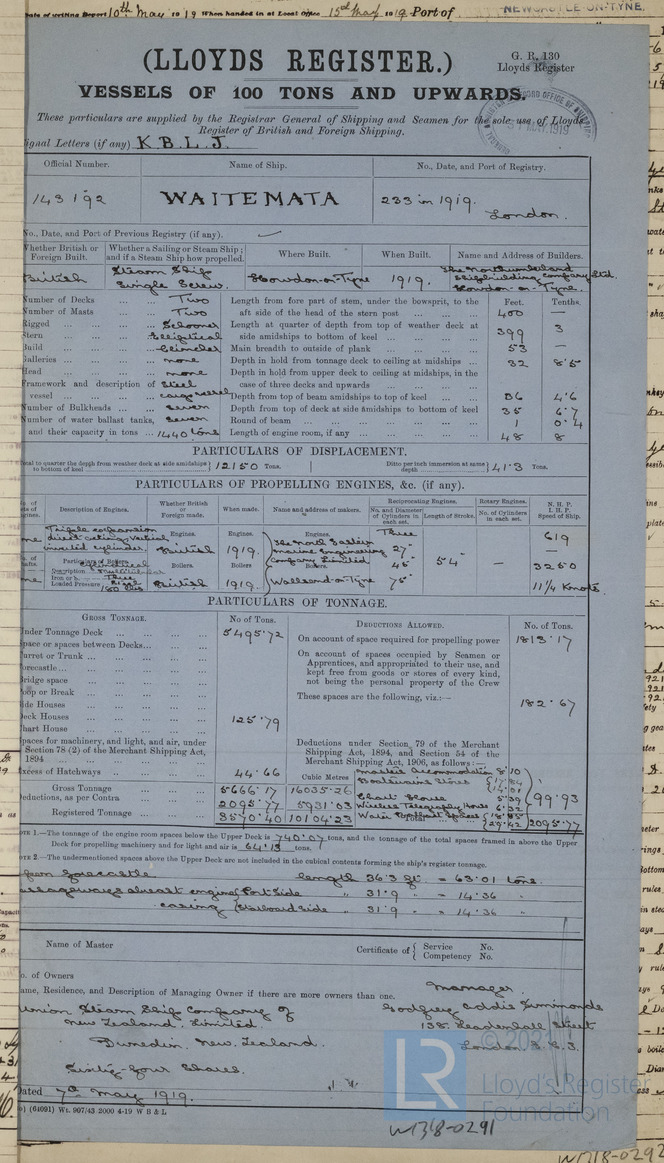 Date of writing Report 10th May 1919 When handed in at Local Office 15th May 1919 Port of NEWCASTLE-ON-TYNE.
(LLOYDS REGISTER.)
G. R. 130
Lloyds Register
VESSELS OF 100 TONS AND UPWARDS.
These particulars are supplied by the Registrar General of Shipping and Seamen for the sole use of Lloyds
Register of British and Foreign Shipping.
ignal Letters (if any) K.B.L.J.
Official Number. Name of Ship. No., Date, and Port of Registry.
143192 WAITEMATA 233 in 1919.
London.
No., Date, and Port of Previous Registry (if any).
Whether British or Foreign Built. Whether a Sailing or Steam Ship; and if a Steam Ship how propelled. Where Built. When Built. Name and Address of Builders.
British Steam Ship Single Screw. Howdon-on-Tyne 1919. The Northumberland Shipbuilding Company Ltd. Howdon-on-Tyne.
Number of Decks Two
Number of Masts Two
Rigged Schooner
Stern Elliptical
Build Clincher
Galleries none
Head none
Framework and description of vessel Steel cargo vessel
Number of Bulkheads Seven
Number of water ballast tanks, Seven
and their capacity in tons 1440 tons
Feet. Tenths.
Length from fore part of stem, under the bowsprit, to the
aft side of the head of the stern post 400 —
Length at quarter of depth from top of weather deck at
side amidships to bottom of keel 399 3
Main breadth to outside of plank 53 —
Depth in hold from tonnage deck to ceiling at midships 32 8.5
Depth in hold from upper deck to ceiling at midships, in the
case of three decks and upwards
Depth from top of beam amidships to top of keel 4.6
Depth from top of deck at side amidships to bottom of keel 35 6.7
Round of beam 1 0.4
Length of engine room, if any 48 8
PARTICULARS OF DISPLACEMENT.
Total to quarter the depth from weather deck at side amidships to bottom of keel 12150 Tons. Ditto per inch immersion at same depth 41.3 Tons.
PARTICULARS OF PROPELLING ENGINES, &c. (if any).
Description of Engines. Whether British or Foreign made. When made. Name and address of makers. Reciprocating Engines. Rotary Engines. N. H. P. I. H. P. Speed of Ship.
No. and Diameter of Cylinders in each set. Length of Stroke. No. of Cylinders in each set.
Triple expansion direct acting vertical inverted cylinder. Engines. British Engines. 1919. Engines. The North Eastern Marine Engineering Company Limited Three 27" 45" 75" 54" — 619
3250
11¼ Knots
Particulars of Boilers Description Iron or Steel Loaded Pressure Boilers British Boilers 1919. Boilers. Wallsend-on-Tyne
PARTICULARS OF TONNAGE.
GROSS TONNAGE. No. of Tons. DEDUCTIONS ALLOWED. No. of Tons.
Under Tonnage Deck 5495.72
Space or spaces between Decks
Turret or Trunk
Forecastle
Bridge space
Poop or Break
Side Houses
Deck Houses 125.79
Chart House
Spaces for machinery, and light, and air, under
Section 78 (2) of the Merchant Shipping Act,
1894
Excess of Hatchways 44.66
Gross Tonnage 5666.17
Deductions, as per Contra 2095.77
Registered Tonnage 3570.40
Cubic Metres
16035.26
5931.03
10104.23
On account of space required for propelling power 1813.17
On account of spaces occupied by Seamen or
Apprentices, and appropriated to their use, and
kept free from goods or stores of every kind,
not being the personal property of the Crew
These spaces are the following, viz.:— 182.67
Deductions under Section 79 of the Merchant
Shipping Act, 1894, and Section 54 of the
Merchant Shipping Act, 1906, as follows:—
Masters Accommodation 8.10
Boatswains Stores
Chart House 5.39
Wireless Telegraphy House
Water Ballast Spaces
99.93
Total 2095.77
NOTE 1.—The tonnage of the engine room spaces below the Upper Deck is 740.07 tons, and the tonnage of the total spaces framed in above the Upper
Deck for propelling machinery and for light and air is 64.13 tons.
NOTE 2.—The undermentioned spaces above the Upper Deck are not included in the cubical contents forming the ship's register tonnage.
Open Forecastle length 36.3 ft. = 63.01 tons.
Passageways abreast engine casing Port Side " 31.9 " = 14.36 "
Starboard Side " 31.9 " = 14.36 "
Name of Master Certificate of Service No. Competency No.
No. of Owners
Name, Residence, and Description of Managing Owner if there are more owners than one.
Union Steam Ship Company of
New Zealand, Limited.
Dunedin, New Zealand.
Sixty-four Shares.
Manager
Godfrey Eddie Simmonds
138, Leadenhall Street
London E.C.3.
Dated 7th May 1919.
(64091) Wt. 907/43 2000 4-19 W B & L
LR
Lloyd's Register
Foundation
W1318-0291
W1318-0292